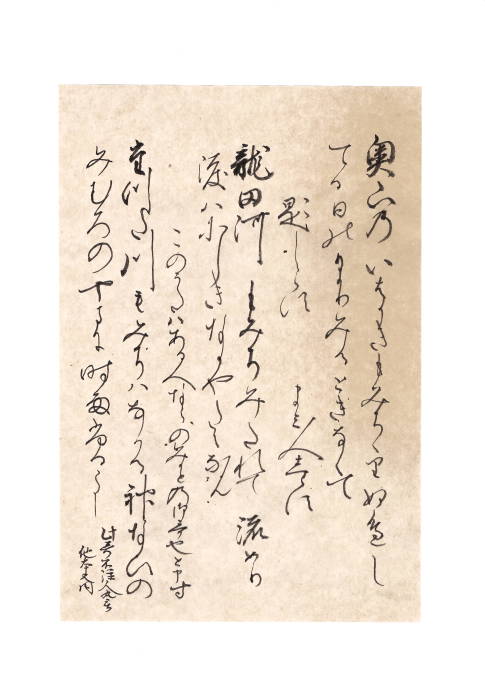 奥山乃いはかきもみちちりぬへし
てる日のひかりみるときなくて
題しらす
よみ人しらす
龍田河もみちみたれて流めり
渡ハにしきなかやたえなん
このうたハある人ならのみかとの御哥也と申す
たつた川もみちハなかる神なひの
みむろのやまに時雨ふるらし
此哥不注人丸哥
他本同